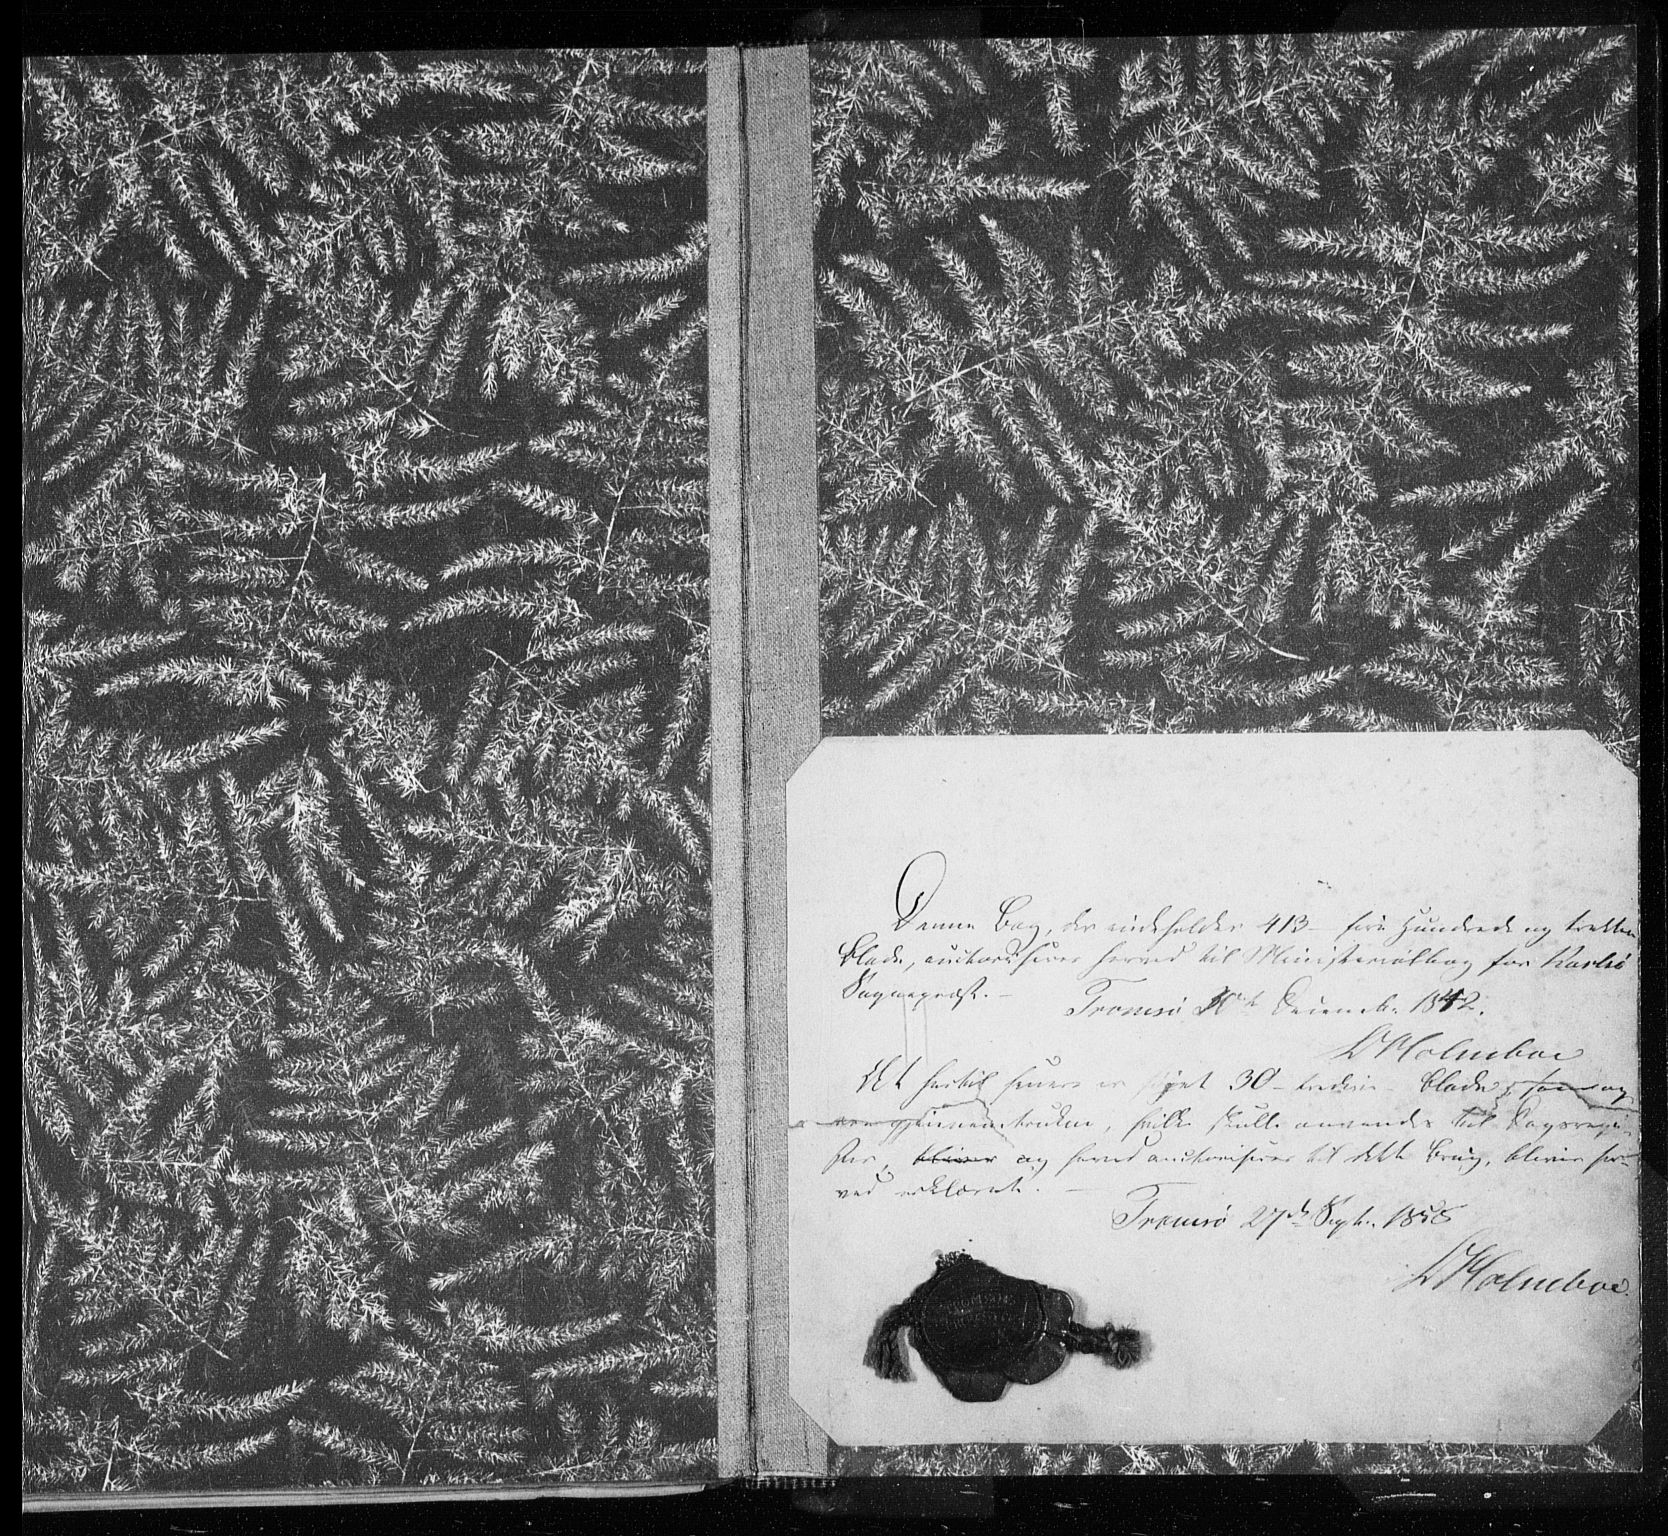 Denne Bog, der indeholder 413 – fire Hundrede og tretten
Blade, authoriseres herved til Ministerialbog for Karlsö
Sognepræst. –
Tromsö 30te Decemb. 1842.
D Holmboe
At hertil senere er föjet 30 – tredive – Blade, som og
ere gjennemtrukne, hvilke skulle anvendes til Dagsregi-
ster, bliver og herved authoriserer til dette Brug, bliver her-
ved erklæret. –
Tromsö 27de Septb. 1858
D Holmboe